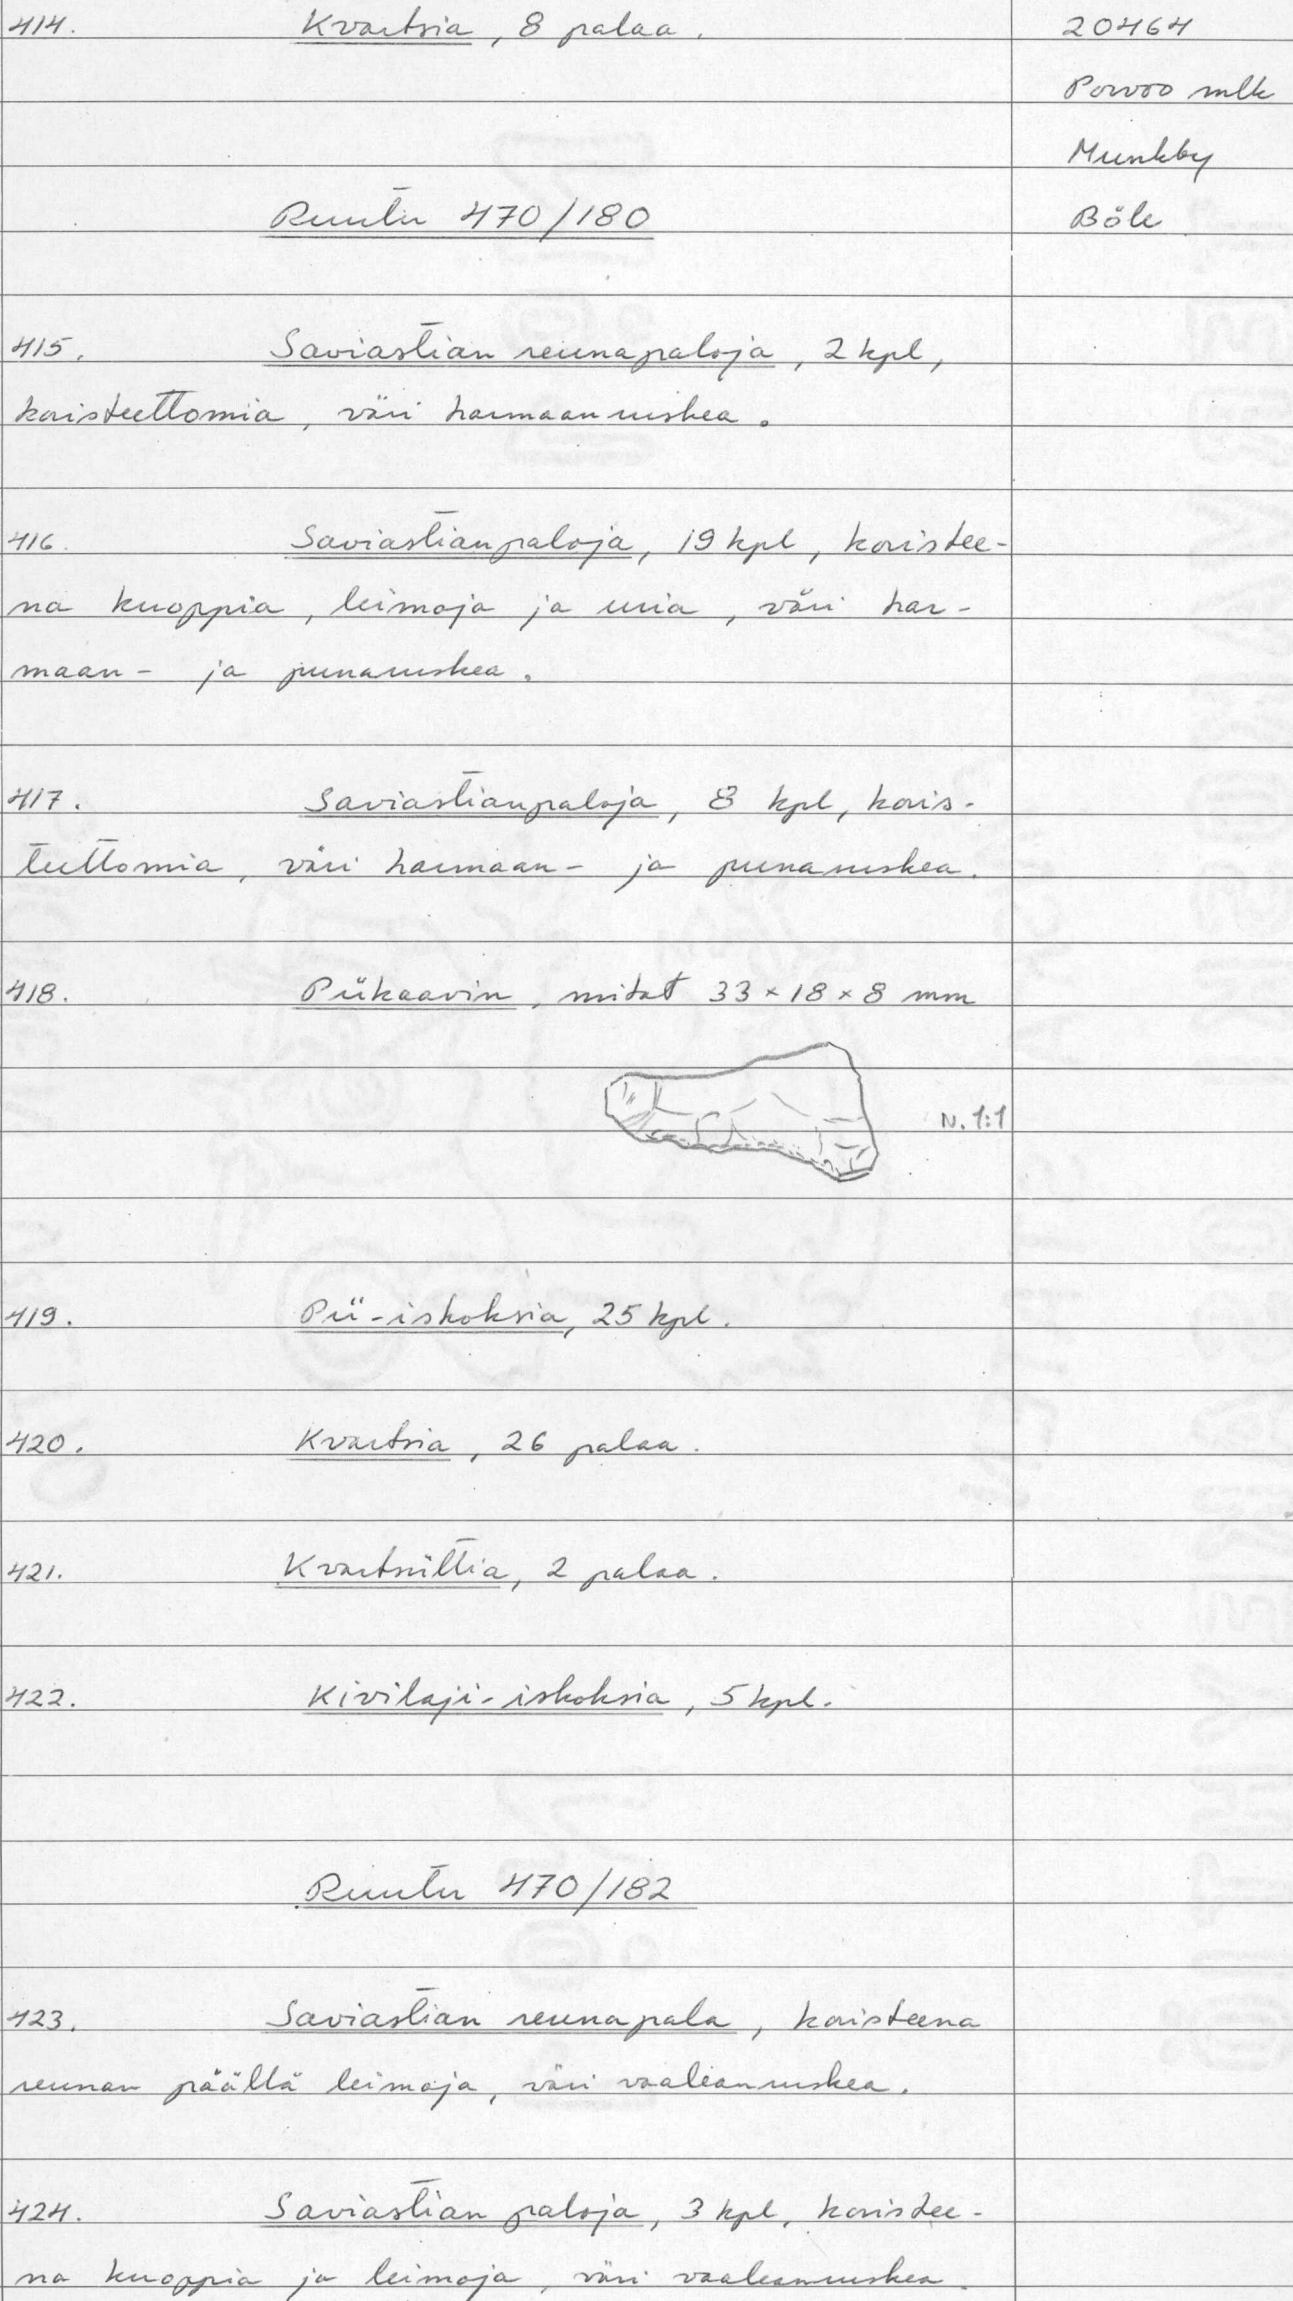 414. Kvartsia, 8 palaa.
20464
Porvoo mlk
Munkby
Böle
Ruutu 470/180
415. Saviastian reunapaloja, 2 kpl,
koristeettomia, väri harmaanruskea.
416. Saviastianpaloja, 19 kpl, koristee-
na kuoppia, leimoja ja uria, väri har-
maan- ja punaruskea.
417. Saviastianpaloja, 8 kpl, koris-
teettomia, väri harmaan- ja punaruskea.
418. Piikaavin, mitat 33 × 18 × 8 mm
N. 1:1
419. Pii-iskoksia, 25 kpl.
420. Kvartsia, 26 palaa.
421. Kvartsiittia, 2 palaa.
422. Kivilaji-iskoksia, 5 kpl.
Ruutu 470/182
423. Saviastian reunapala, koristeena
reunan päällä leimoja, väri vaaleanruskea.
424. Saviastian paloja, 3 kpl, koristee-
na kuoppia ja leimoja, väri vaaleanruskea.